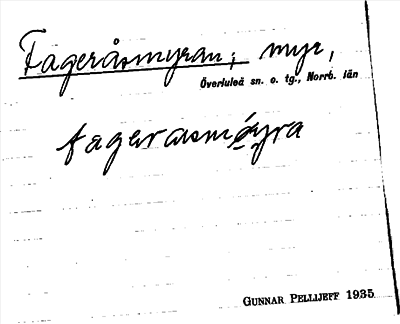 Fageråsmyran; myr,
Överluleå sn. o. tg., Norrb. län
fagerasmýra
GUNNAR PELLIJEFF 1935